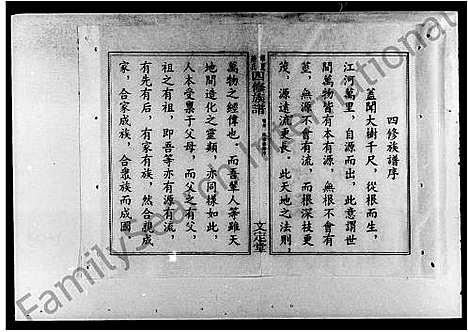 四修族譜序
蓋聞大樹千尺，從根而生，
江河萬里，自源而出，此意謂世
間萬物皆有本有源，無根不會有
莖，無源不會有流，而根深枝更
茂，源遠流更長．此天地之法則，
四修族譜
文定堂
萬物之經偉也．而吾輩人等雖天
地間造化之靈類，亦同樣如此，
人本受稟于父母，而父之有父，
祖之有祖，即吾等亦有源有流，
有先有后，有家有族，然合親成
家，合家成族，合衆族而成國
FamilySearch International